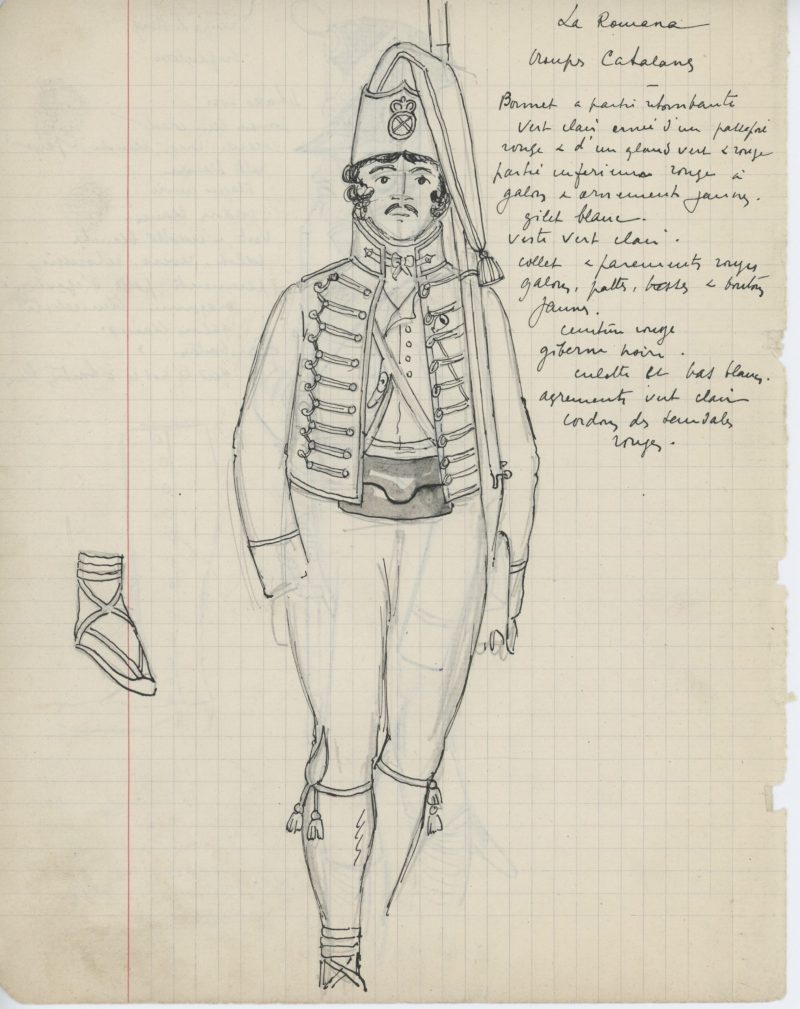 La Romana
troupes Catalanes
Bonnet a partie retombante
vert clair orné d'un passepoil
rouge & d'un gland vert & rouge
partie inferieure rouge à
galons & ornements jaunes.
gilet blanc.
veste vert clair.
collet & parements rouges
galons, pattes, & boutons
jaunes.
ceinture rouge
giberne noire.
culotte et bas blancs.
agrements vert clair
cordons des
rouges.